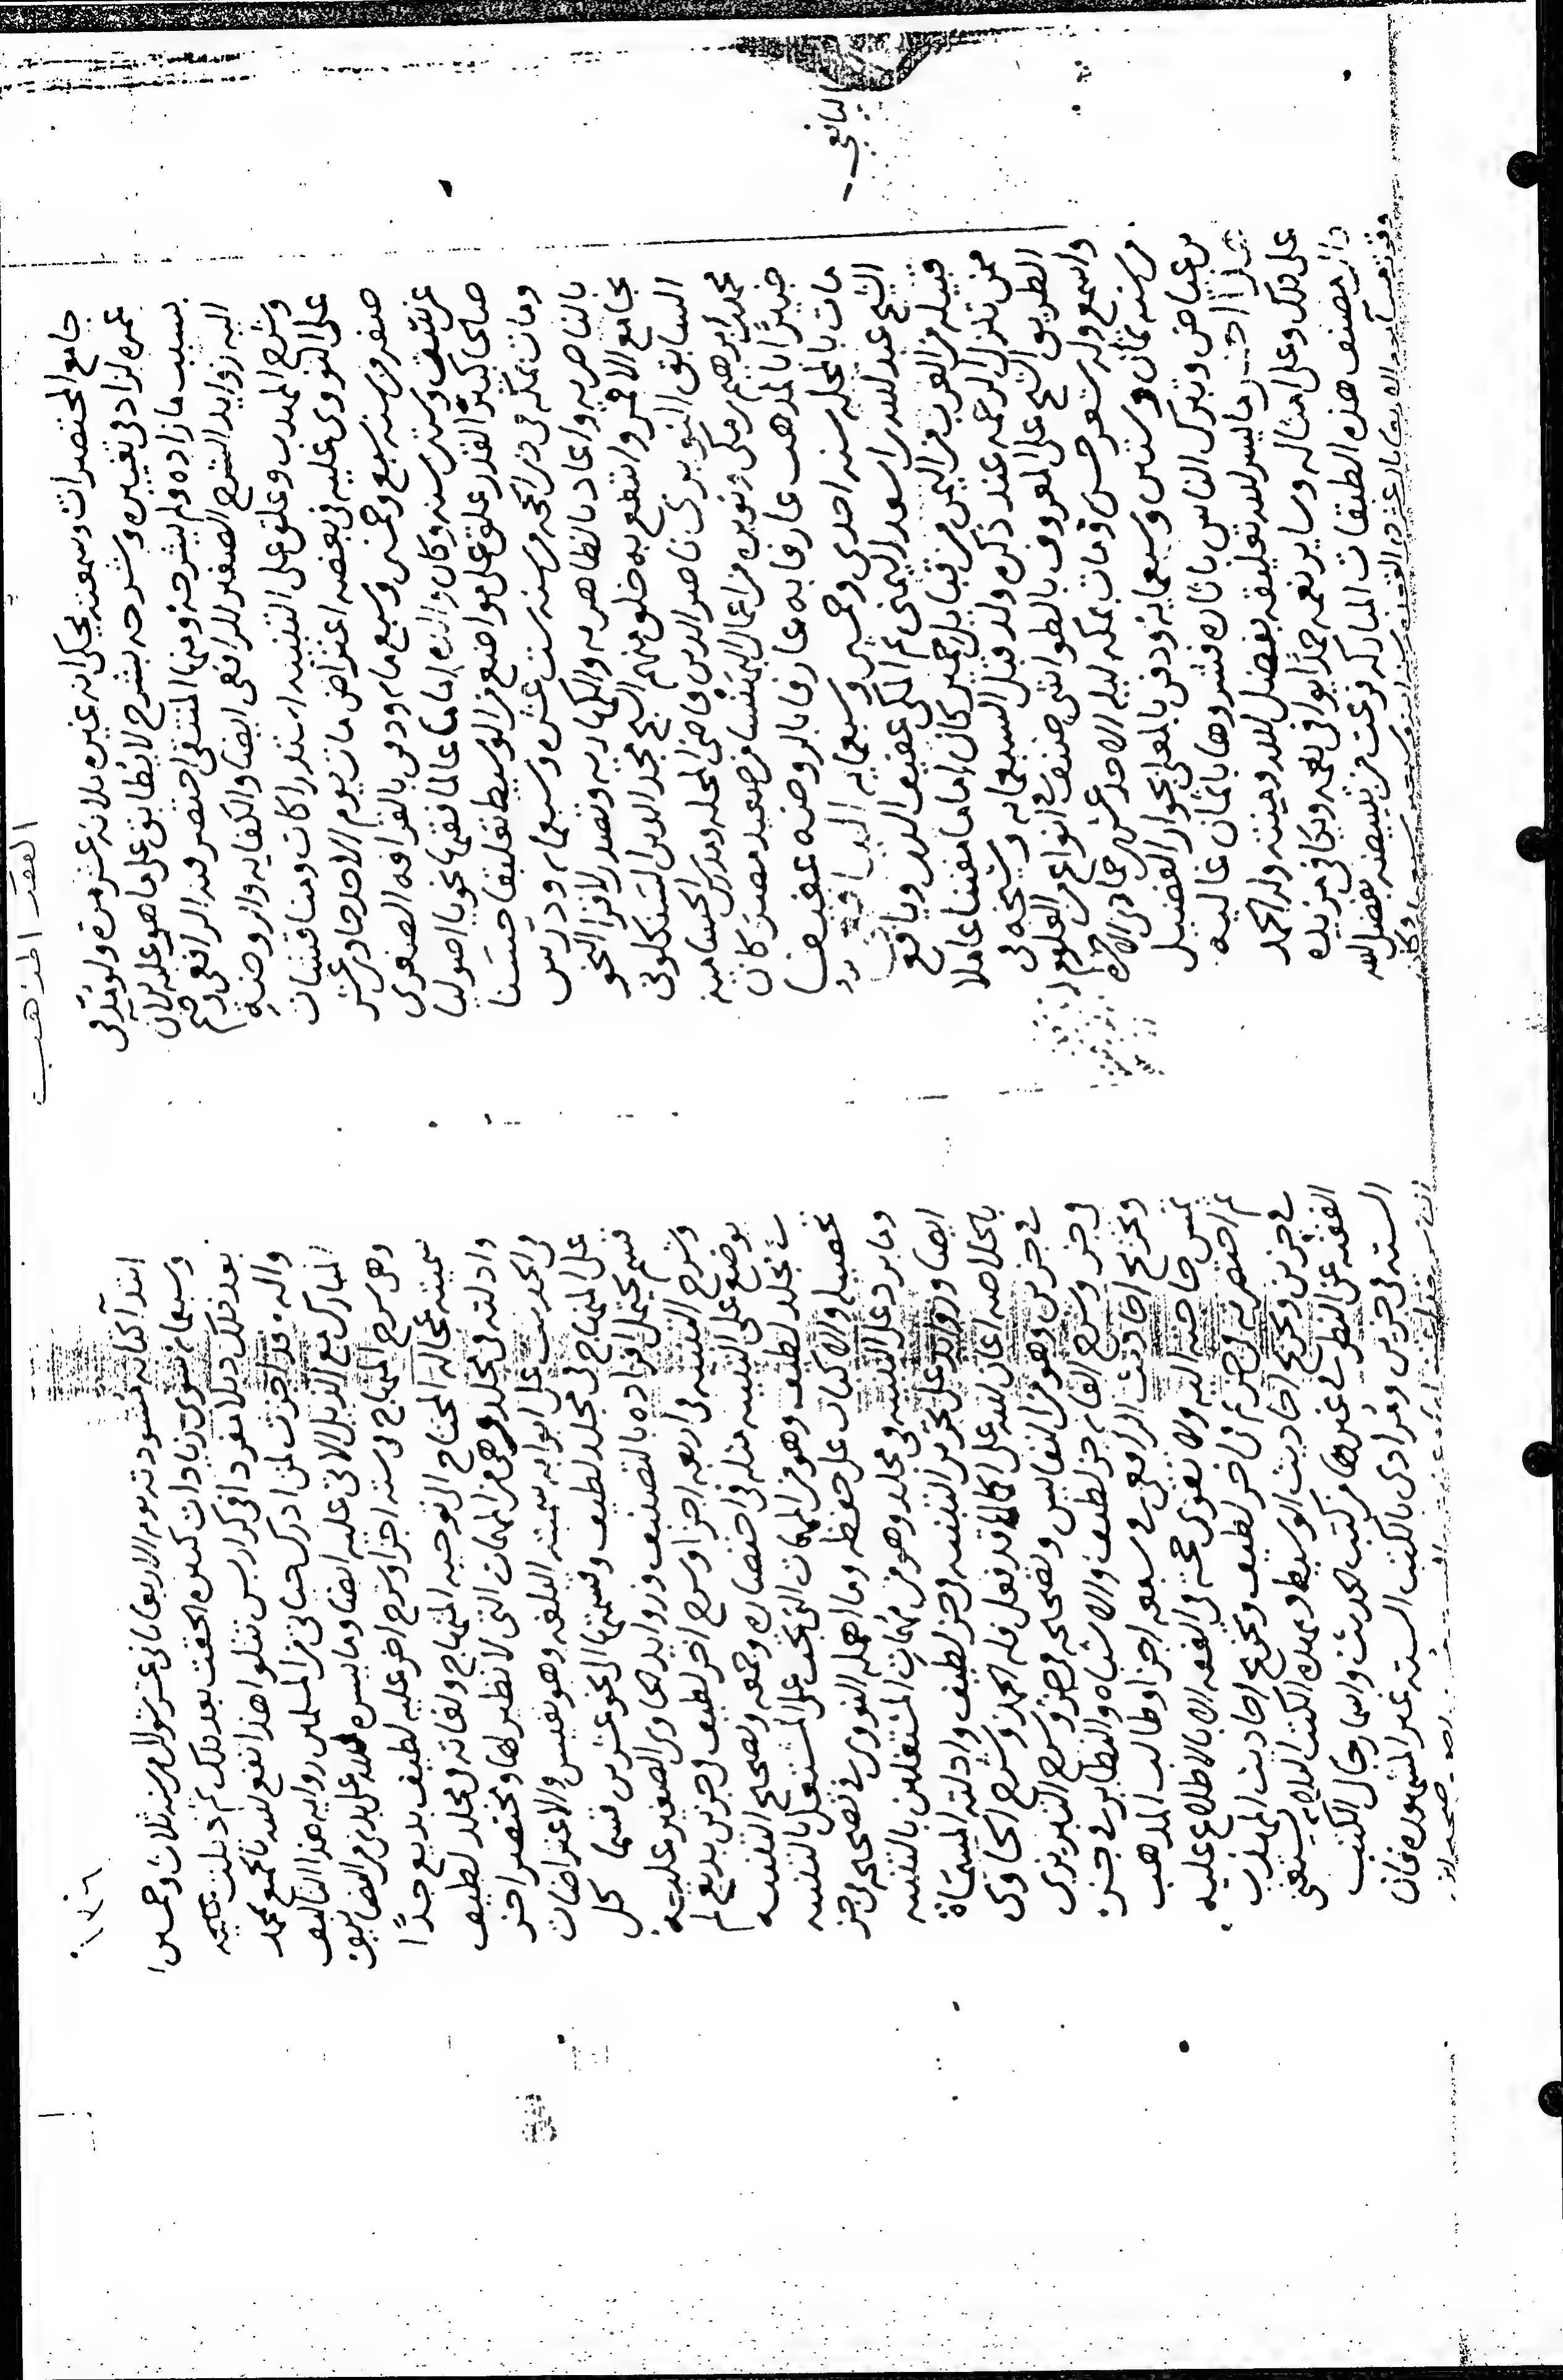 العقد المذهب
جامع المختصرات وسمعته يحكى انه غيره ثلاثة عشر مرة ولو مد فى
عمره لزاد فى تغييره وشرحه بشرح لا يطابق على ما هو عليه لان
بسبب ما زاده ولم يشرحه ومنها المنتقى اختصر فيه الرافعى وضم
اليه زوايد الشرح الصغير للرافعى ايضا والكفايه والروضة
وشرح المهذب وعلق على التنبيه استدراكات ومناقشات
على النووى عليه فى بعضه اعتراض مات يوم الاحد حادى عشر
صفر من سنه سبع وخمسين وسبع مايه ودفن بالقرافه الصغرى
عن نيف وستين سنه وكان والده اماما عالما فقيها نحويا اصوليا
صالحا كبير القدر علق على مواضع من الوسيط تعليقا حسنا
ومات بمكه فى ذى الحجه من سنه ست عشره وسبعمايه ودرس
بالناصريه واعاد بالظاهريه والكهاريه وتصدر لاقرا النحو
بجامع الاقمر وانتفع به خلق منهم الشيخ مجد الدين السنكلونى
السابق النويرى ناصر الدين قاضى المحله ومدرس الحساميه
محمد بن ابرهيم بن مكى ونويره من اعمال البهنسا من صعيد مصر كان
خبيرا بالمذهب عارفا به عارفا بالروضه عفيفا
مات بالمحله سنه احدى وخمسين وسبعمايه اليافعى
اليافعى
الشيخ عبد الله بن اسعد اليمنى ثم المكى عفيف الدين ويافع
قبيله من العرب من اليمن من قبايل حمير كان اماما مفننا عاملا
ممن تنزل الرحمه عند ذكره ولد قبل السبعمايه وشيخه فى
الطريق الشيخ على المعروف بالطواشى صنف فى انواع من العلوم
واسمع وله شعر حسن ومات بمكه ليله الاحد جمادى الاخره
من سنه ثمان وستين وسبعمايه ودفن بالمعلى بجوار الفضيل
بن عياض وتبرك الناس باثاره فشروها باثمان غاليه
هذا اخر ما يسر الله تعليقه بفضل الله ومنته وله الحمد
على ذلك وعلى امثاله وساير نعمه حمدا يوافى نعمه ويكافى مزيده
قال مصنف هذه الطبقات المباركه فرغت من تبييضه بفضل الله
ابتدا كتابه مسودته يوم الاربعا ثانى عشر شوال من سنه ثلاث وخمسين
وسبعمايه سوى زيادات كثيره الحقت بعد ذلك ثم ذيلت عليه
بعد ذلك ذيلا مفردا فى كراريس تتلوا هذا نفع الله بالجميع بمحمد
واله وقد اجزت لمن ادرك حياتى من المسلمين روايه هذا التاليف
المبارك مع الذيل الاتى عليه ايضا وما يسره الله على يدى من التصانيف
وهى شرح المنهاج فى سته اجزا وشرح اخر عليه لطيف بديع جدا
سميته عجالة المحتاج الى توجيه المنهاج ولغاته فى مجلد لطيف
وادلته فى مجلد وهى من المهمات التى لا نظير لها ومختصر اخر
فى الحديث على ابوابه سميته البلغه وهو نفيس والاعتراضات
على المنهاج فى مجلد لطيف وقسمتها الى نحو عشرين قسما كل
قسم يحتمل افراده بالتصنيف وزوايد الحاوى الصغير عليه
وشرح التنبيه فى اربعه اجزا وشرح اخر لطيف فى جزين بديع لم
يوضع على التنبيه مثله فى اختصاره وجمعه وتصحيح التنبيه
فى مجلد لطيف وهو من المهمات التى يجب على المشتغل بالتنبيه
تحصيله والاكباب على حفظه وما اهمله النووى فى تصحيحه فى جز
وما يرد على التنبيه فى مجلد وهو من مهمات المشتغلين بالتنبيه
ايضا وزوايد على تحرير التنبيه فى جز لطيف وادلته المسماة
بالخلاصه اعان الله على اكمالها وقد فعل فله الحمد وشرح الحاوى
فى جزين وهو من النفايس وتصحيحه فى جز وشرح التبريزى
فى جز وشرح الفايه جز لطيف والاشباه والنظاير فى جز
وتخريج احاديث الرافعى فى سبعه اجزا وطالب المذهب
يمس حاجته اليه ولا تقوى محجته فى الفقه الا بالاطلاع عليه
ثم اختصرته فى جز ثم فى اخر لطيف وتخريج احاديث المهذب
فى جزين وتخريج احاديث الوسيط وبهذه الكتب الثلاثه يستغنى
الفقيه عن النظر فى غيرها من كتب الحديث واسما رجال الكتب
السته فى جزين ومرادى بالكتب السته غير المشهوره فان